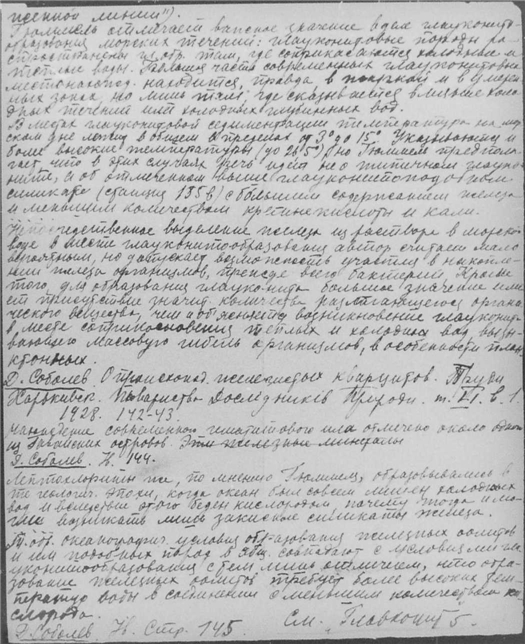 женной линии").
Гюммель отмечает важное значение в деле глауконито-
образования морских течений: глауконитовые породы ра-
спространены там, где соприкасаются холодные и
теплые воды. Большая часть современных глауконитовых
местонахожд. находится, правда в и в умерен-
ных зонах, но лишь там, где сказывается влияние холо-
дных течений или холодных глубинных вод.
В местах глауконитовой седиментации температура на мор-
ском дне лежит в общем в пределах от 3° до 15°. Указываются и
более высокие температуры (до ), но Гюммель предпола-
гает, что в этих случаях речь идет не о типичном глауко-
ните, а об отмеченном выше глауконитоподобном
силикате (станция ) с большим содержанием железа
и меньшим количеством кремнекислоты и кали.
Непосредственное выделение железа из раствора в морской
воде в месте глауконитообразования автор считает мало
вероятным, но допускает возможность участия в накопле-
нии железа организмов, прежде всего бактерий. Кроме
того, для образования глауконита большое значение име-
ет присутствие значит. количества разлагающегося органи-
ческого вещества, чем и объясняется возникновение глауконита
в месте соприкосновения теплых и холодных вод, вызы-
вающего массовую гибель организмов, в особенности планк-
тонных.
Д. Соболев. О происхожд. железистых кварцитов. Труди
Харьківськ. Товариства Дослідників Природи. т. в. 1.
1928. 142-43.
Нахождение современного ила отмечено около одного
из островов железные минералы
Д. Соболев. К. 144.
Лептохлориты же, по мнению Гюммеля, образовывались в
те геологич. эпохи, когда океан был совсем лишен холодных
вод и вследствие этого беден кислородом, почему тогда и мо-
гли возникать лишь закисные силикаты железа.
Т. обр. океанографич. условия образования железных оолитов
и им подобных пород совпадают с условиями гла-
уконитообразования с тем лишь отличием, что обра-
зование железных оолитов требует более высоких тем-
ператур воды в соединении с меньшим количеством ки-
слорода.
Д. Соболев. К. Стр. 145. См. "Главконит" 5.